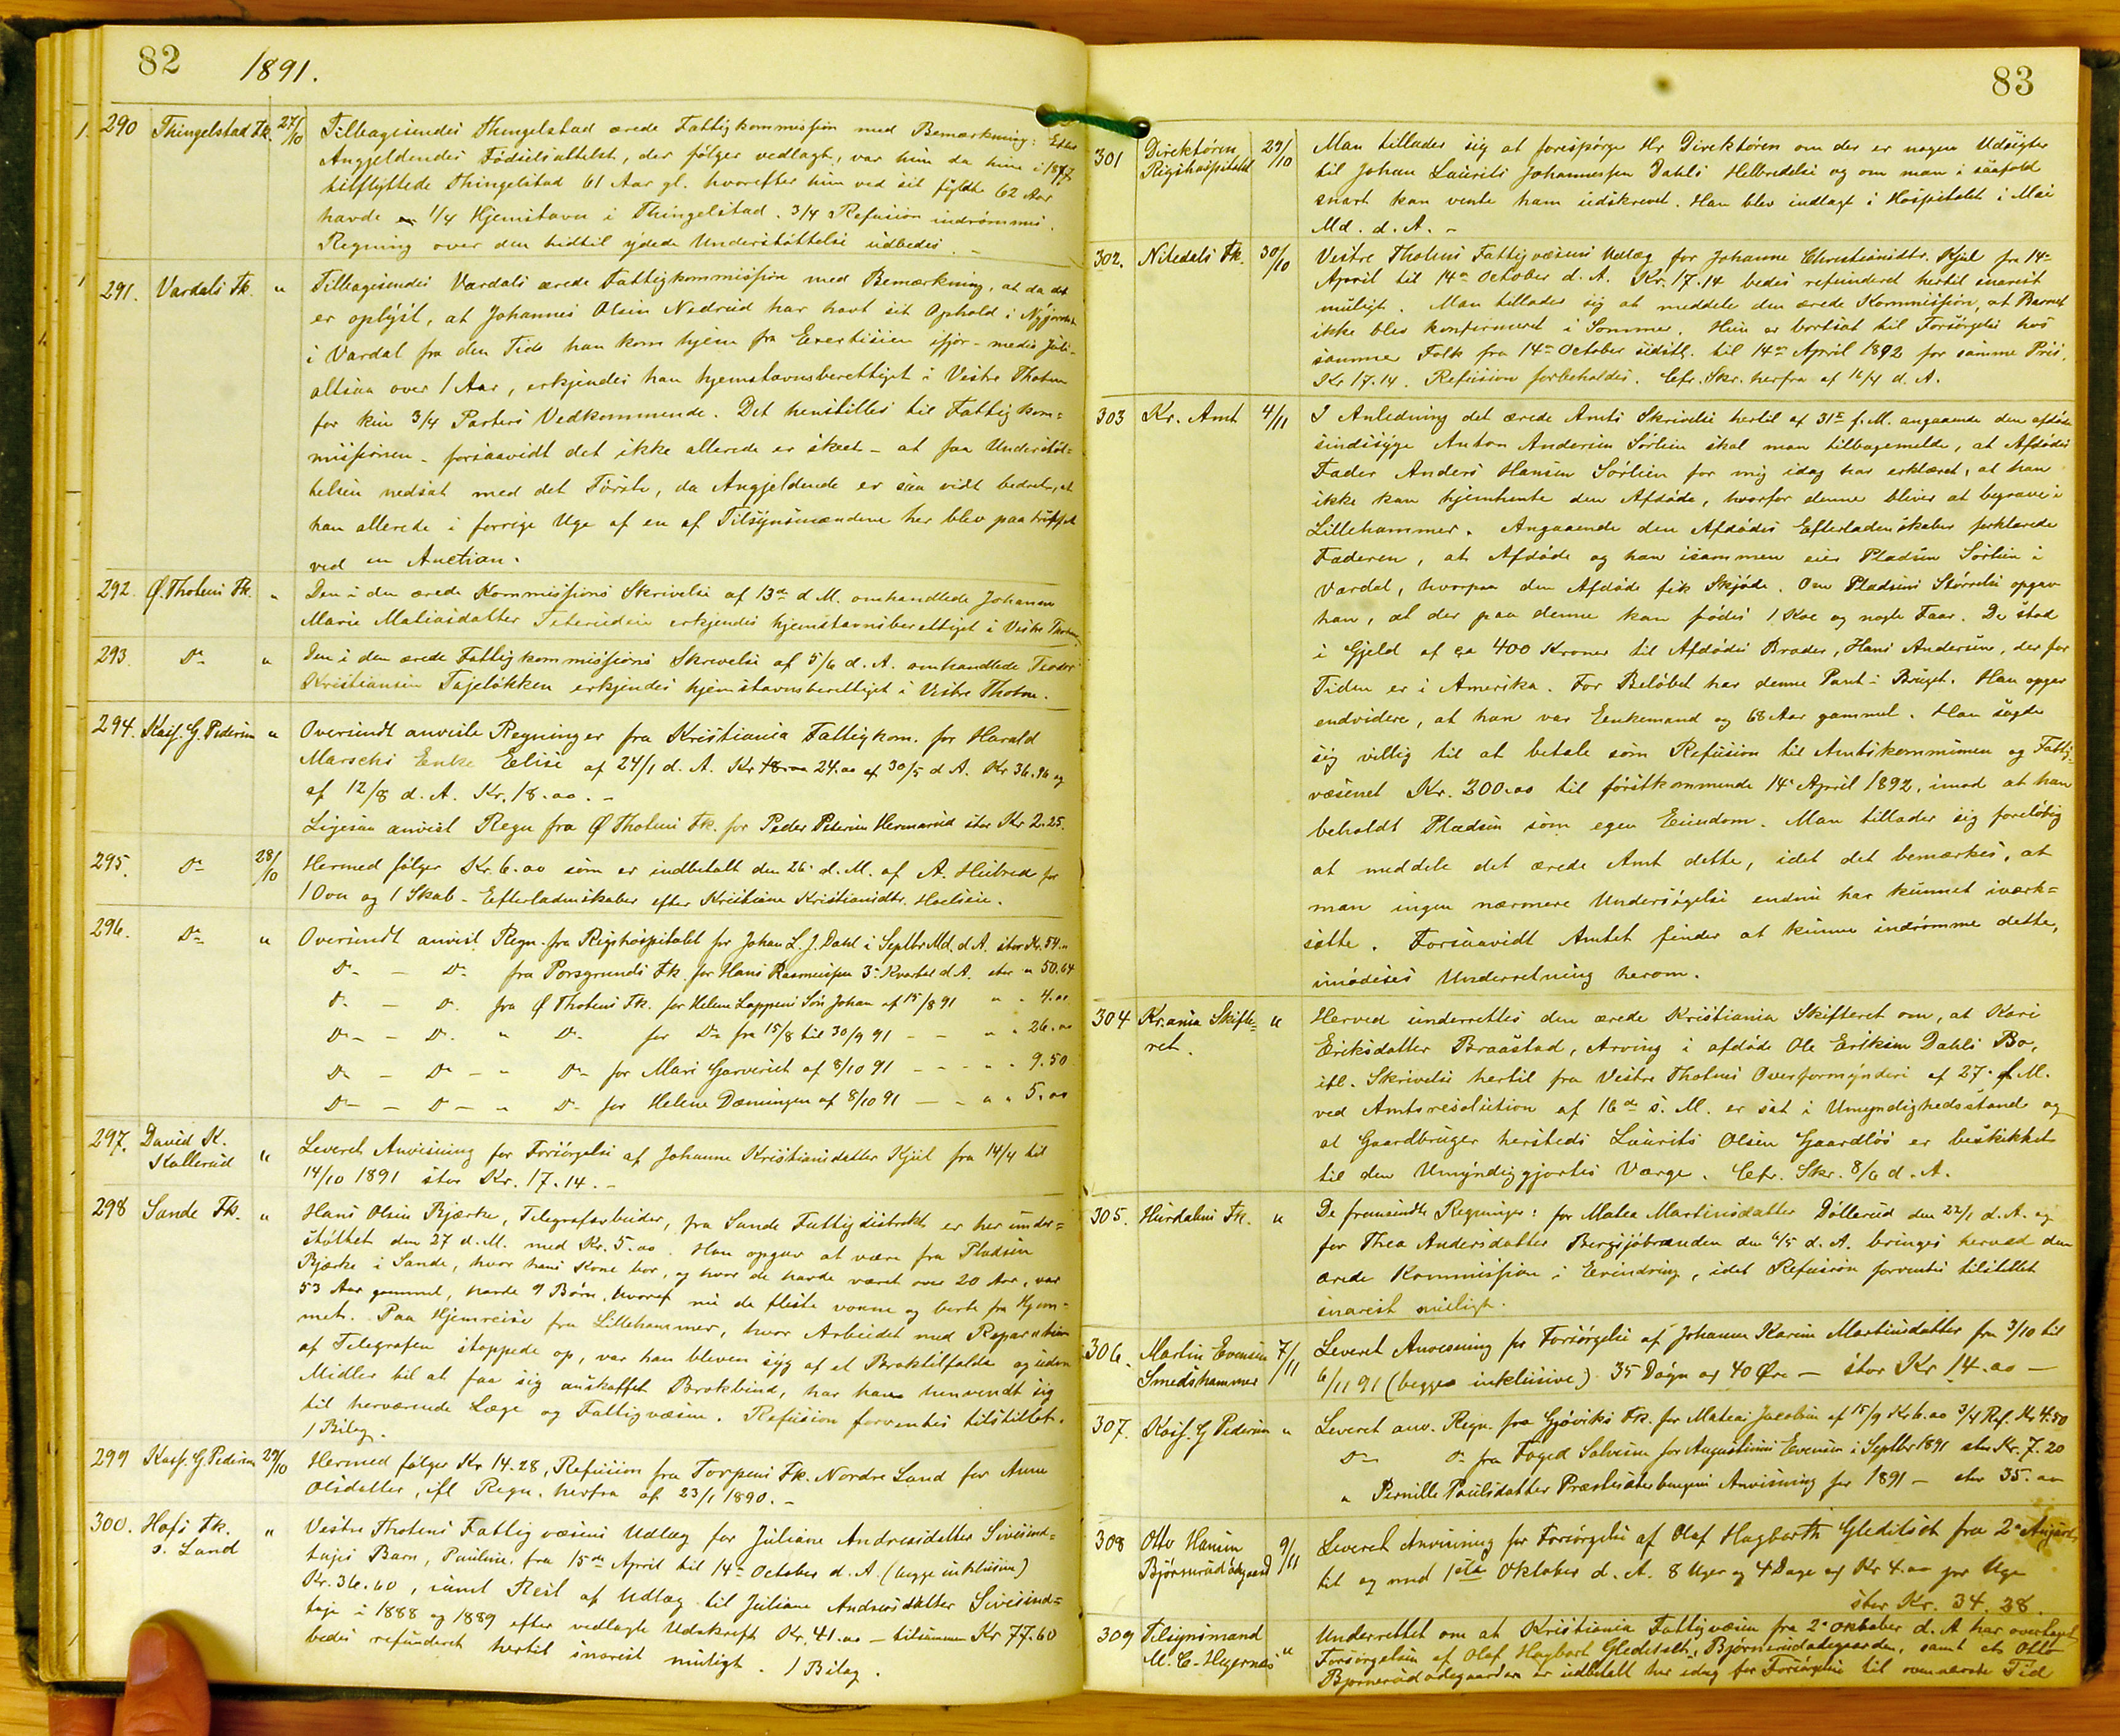 82 1891.
290 Thingelstad Fk. 27/10 Tilbagesendes Thingelstad ærede Fattigkommission med Bemærkning: Efter
Angjeldendes Fødselsattest, der følger vedlagt, var hun da hun i 1877
tilflyttede Thingelstad 61 Aar gl. hvorefter hun ved sit fyldte 62 Aar
havde 1/4 Hjemstavn i Thingelstad. 3/4 Refusion indrømmes.
Regning over den hidtil ydede Understøttelse udbedes. -
291. Vardals Fk. " Tilbagesendes Vardals ærede Fattigkommission med Bemærkning, at da det
er oplyst, at Johannes Olsen Nedrud har havt sit Ophold i
i Vardal fra den Tid han kom hjem fra Exersisien ifjor - medio Juli -
altsaa over 1 Aar, erkjendes han hjemstavnsberettiget i Vestre Thoten
for kun 3/4 Parters Vedkommende. Det henstilles til Fattigkom=
missionen - forsaavidt det ikke allerede er skeet - at faa Understøt=
telsen nedsat med det Første, da Angjeldende er saa vidt bedret, at
han allerede i forrige Uge af en af Tilsynsmændene her blev paatruffet
ved en Auction.
292. Ø. Thotens Fk. " Den i den ærede Kommissions Skrivelse af 13de d. M. omhandlede Johanne
Marie Matiasdatter Teterudeie erkjendes hjemstavnsberettiget i Vestre Thoten.
293. Do " Den i den ærede Fattigkommissions Skrivelse af 5/6 d. A. omhandlede Teodor
Kristiansen Tajeløkken erkjendes hjemstavnsberettiget i Vestre Thoten.
294. Kass. G. Pedersen " Oversendt anviste Regninger fra Kristiania Fattigkom. for Harald
Marschs Enke Elise af 24/1 d. A. Kr. 24.00 af 30/5 d A. Kr 36.96 og
af 12/8 d. A. Kr. 18.00. -
Ligesaa anvist Regn fra Ø Thotens Fk. for Peder Petersen Hermanrud stor Kr 2.25.
295. Do 28/10 Hermed følger Kr. 6.00 som er indbetalt den 26. d. M. af A. Heibred for
1 Ovn og 1 Skab - Efterladenskaber efter Kristiane Kristiansdtr. Hoelseie.
296. Do " Oversendt anvist Regn. fra Rigshospitalet for Johan L. J. Dahl i Septbr Md. d. A. stor Kr. 54.
Do - Do fra Porsgrunds Fk. for Hans Rasmussen 3. Kvartal d. A. stor " 50.64
Do - Do fra Ø Thotens Fk. for Helene Lappens Søn Johan af 15/8 91 " " 4.00
Do - Do " Do for Do fra 15/8 til 30/9 91 - - " " 26.00
Do - Do - " Do for Mari Garveriet af 8/10 91 - - - " " 9.50
Do - Do - " Do for Helene Dæmningen af 8/10 91 - - " " 5.00
297. David K.
Kallerud " Leveret Anvisning for Forsørgelse af Johanne Kristiansdatter Kjiil fra 14/4 til
14/10 1891 stor Kr. 17.14. -
298 Sande Fk. " Hans Olsen Bjærke, Telegrafarbeider, fra Sande Fattigdistrikt er her under=
støttet den 27 d. M. med Kr. 5.00. Han opgav at være fra Pladsen
Bjærke i Sande, hvor hans Kone bor, og hvor de havde været over 20 Aar, var
53 Aar gammel, havde 9 Børn, hvoraf nu de fleste voxne og borte fra Hjem=
met. Paa Hjemreise fra Lillehammer, hvor Arbeidet med Reparation
af Telegrafen stoppede op, var han bleven syg af et Broktilfælde og uden
Midler til at faa sig anskaffet Brokbind, har han henvendt sig
til herværende Læge og Fattigvæsen. Refusion forventes tilstillet.
1 Bilag.
299 Kass. G. Pedersen 29/10 Hermed følger Kr 14.28, Refusion fra Torpens Fk. Nordre Land for Anne
Olsdatter, ifl Regn. herfra af 23/1 1890. -
300. Hofs Fk.
S. Land " Vestre Thotens Fattigvæsens Udlæg for Juliane Andreasdatter Sivesind=
tajes Barn, Pauline, fra 15de April til 14de October d. A. (begge inklusive)
Kr. 36.60, samt Rest af Udlæg til Juliane Andreasdatter Sivesind=
taje i 1888 og 1889 efter vedlagte Udskrift Kr. 41.00 - tilsammen Kr 77.60
bedes refunderet hertil snarest muligt. 1 Bilag.
83
301 Direktøren
Rigshospitalet 29/10 Man tillader sig at forespørge Hr Direktøren om der er nogen Udsigter
til Johan Laurits Johannessen Dahls Helbredelse og om man i saafald
snart kan vente ham udskrevet. Han blev indlagt i Hospitalet i Mai
Md. d. A. -
302. Nitedals Fk. 30/10 Vestre Thotens Fattigvæsens Udlæg for Johanne Christiansdtr. Kjiil fra 14de
April til 14de October d. A. Kr. 17.14 bedes refunderet hertil snarest
muligt. Man tillader sig at meddele den ærede Kommission, at Barnet
ikke blev konfirmeret i Sommer. Hun er bortsat til Forsørgelse hos
samme Folk fra 14de October sidstl. til 14de April 1892 for samme Pris,
Kr 17.14. Refusion forbeholdes. Cfr. Skr. herfra af 16/4 d. A.
303 Kr. Amt 4/11 I Anledning det ærede Amts Skrivelse hertil af 31te f. M. angaaende den afdøde
sindssyge Anton Andersen Sørlien skal man tilbagemelde, at Afdødes
Fader Anders Hansen Sørlien for mig idag har erklæret, at han
ikke kan hjemhente den Afdøde, hvorfor denne bliver at begrave i
Lillehammer. Angaaende den Afdødes Efterladenskaber forklarede
Faderen, at Afdøde og han isammen eier Pladsen Sørlien i
Vardal, hvorpaa den Afdøde fik Skjøde. Om Pladsens Størrelse opgav
han, at der paa denne kan fødes 1 Koe og nogle Faar. De stod
i Gjeld af ca 400 Kroner til Afdødes Broder, Hans Andersen, der for
Tiden er i Amerika. For Beløbet har denne Pant i Bruget. Han opgav
endvidere, at han var Enkemand og 68 Aar gammel. Han sagde
sig villig til at betale som Refusion til Amtskommunen og Fattig=
væsenet Kr. 200.00 til førstkommende 14. April 1892, imod at han
beholdt Pladsen som egen Eiendom. Man tillader sig foreløbig
at meddele det ærede Amt dette, idet det bemærkes, at
man ingen nærmere Undersøgelse endnu har kunnet iværk=
sætte. Forsaavidt Amtet finder at kunne indrømme dette,
imødesees Underretning herom.
304 Kr.ania Skifte=
ret. " Herved underrettes den ærede Kristiania Skifteret om, at Kari
Eriksdatter Braastad, Arving i afdøde Ole Eriksen Dahls Bo,
ifl. Skrivelse hertil fra Vestre Thotens Overformynderi af 27. f. M.
ved Amtsresolution af 16de s. M. er sat i Umyndighedsstand og
at Gaardbruger hersteds Laurits Olsen Gaardløs er beskikket
til den Umyndiggjortes Værge. Cfr. Skr. 8/6 d. A.
305. Hurdalens Fk. " De fremsendte Regninger: for Matea Martinsdatter Døllerud den 22/1 d. A. og
for Thea Andersdatter Bergsjøbraaden den 6/5 d. A. bringes herved den
ærede Kommission i Erindring, idet Refusion forventes tilstillet
snarest muligt.
306. Martin Evensen
Smedshammer 7/11 Leveret Anvisning for Forsørgelse af Johanne Karine Martinsdatter fra 3/10 til
6/11 91 (begge inklusive) 35 Døgn af 40 Øre - stor Kr 14.00 -
307. Kass. G Pedersen " Leveret anv. Regn. fra Gjøviks Fk. for Mateas Jacobsen af 15/9 Kr 6.00 3/4 Ref. Kr 4.50
Do Do fra Foged Salvesen for Augustinus Evensen i Septbr 1891 stor Kr. 7.20
" Pernille Paulsdatter Anvisning for 1891 - stor 35.00
308 Otto Hansen
Bjørnerudødegaard 9/11 Leveret Anvisning for Forsørgelse af Olaf Hagbarth Gleditsch fra 2. August
til og med 1ste Oktober d. A. 8 Uger og 4 Dage af Kr 4.00 pr Uge
stor Kr. 34.28.
309 Tilsynsmand
M. C. Hegernæs " Underrettet om at Kristiania Fattigvæsen fra 2. Oktober d. A har overtaget
Forsørgelsen af Olaf Hagbart Gleditsch, Bjørnerudødegaarden, samt at Otto
Bjørnerudødegaarden er udbetalt her idag for Forsørgelse til ovennævnte Tid